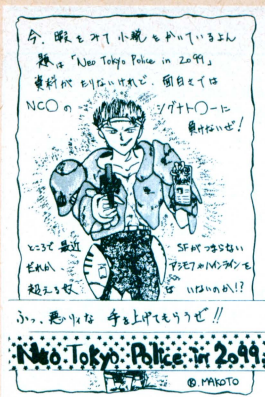 今、暇をみて小説をかいているよん
題は「Neo Tokyo Police in 2099」
資料がたりないけれど 面白さでは
NC〇の シグナト〇ーに
負けないぜ!
ところで最近 SFがつまらない
だれか、 アシモフやハインラインを
超える奴 は いないのか!?
ふっ、悪りィな 手を上げてもらうぜ!!
Neo Tokyo Police in 2099
MAKOTO